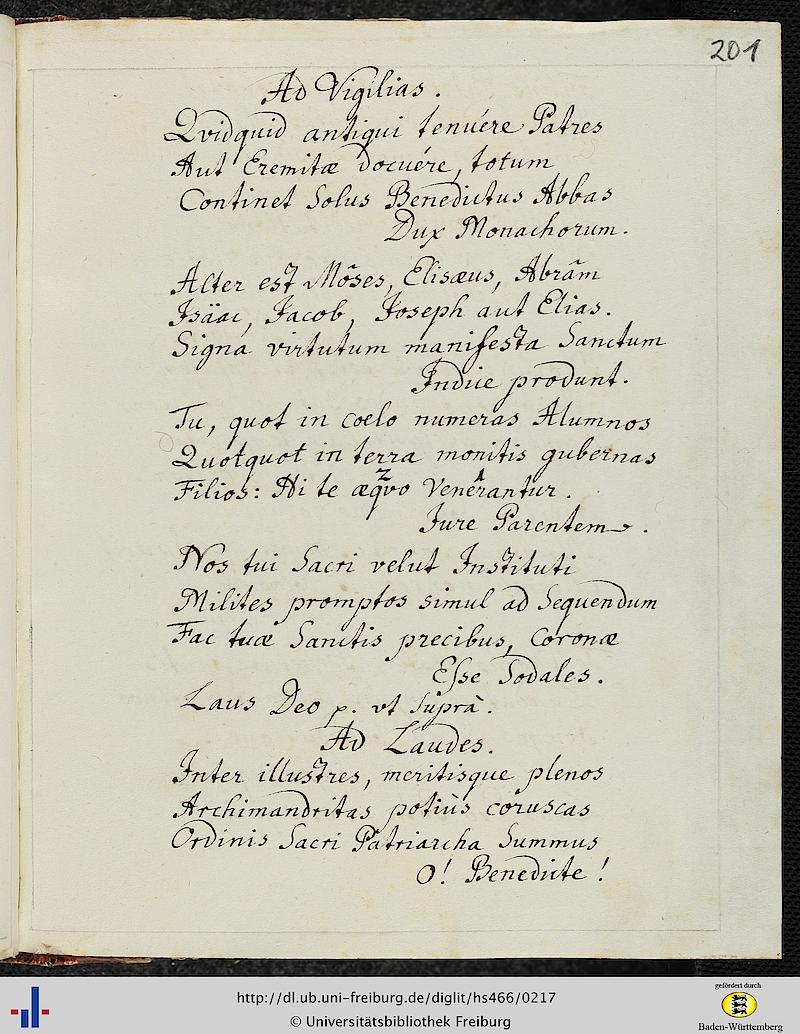 201
Ad Vigilias.
Qvidquid antiqui tenuére Patres
Aut Eremitæ docuére, totum
Continet Solus Benedictus Abbas
Dux Monachorum.
Alter est Môses, Elisæus, Abrãm
Isäac, Jacob, Joseph aut Elias.
Signa virtutum manifesta Sanctum
Indice produnt.
Tu, quot in coelo numeras Alumnos
Quotquot in terra monitis gubernas
Filios: Hi te æqvo Venerantur.
2 1
Jure Parentem.
Nos tui Sacri velut Instituti
Milites promptos simul ad Sequendum
Fac tuæ Sanctis precibus, Coronæ
Esse Sodales.
Laus Deo p. vt Suprà.
Ad Laudes.
Inter illustres, meritisque plenos
Archimandritas potiùs coruscas
Ordinis Sacri Patriarcha Summus
O! Benedicte!
http://dl.ub.uni-freiburg.de/diglit/hs466/0217
© Universitätsbibliothek Freiburg
gefördert durch
Baden-Württemberg